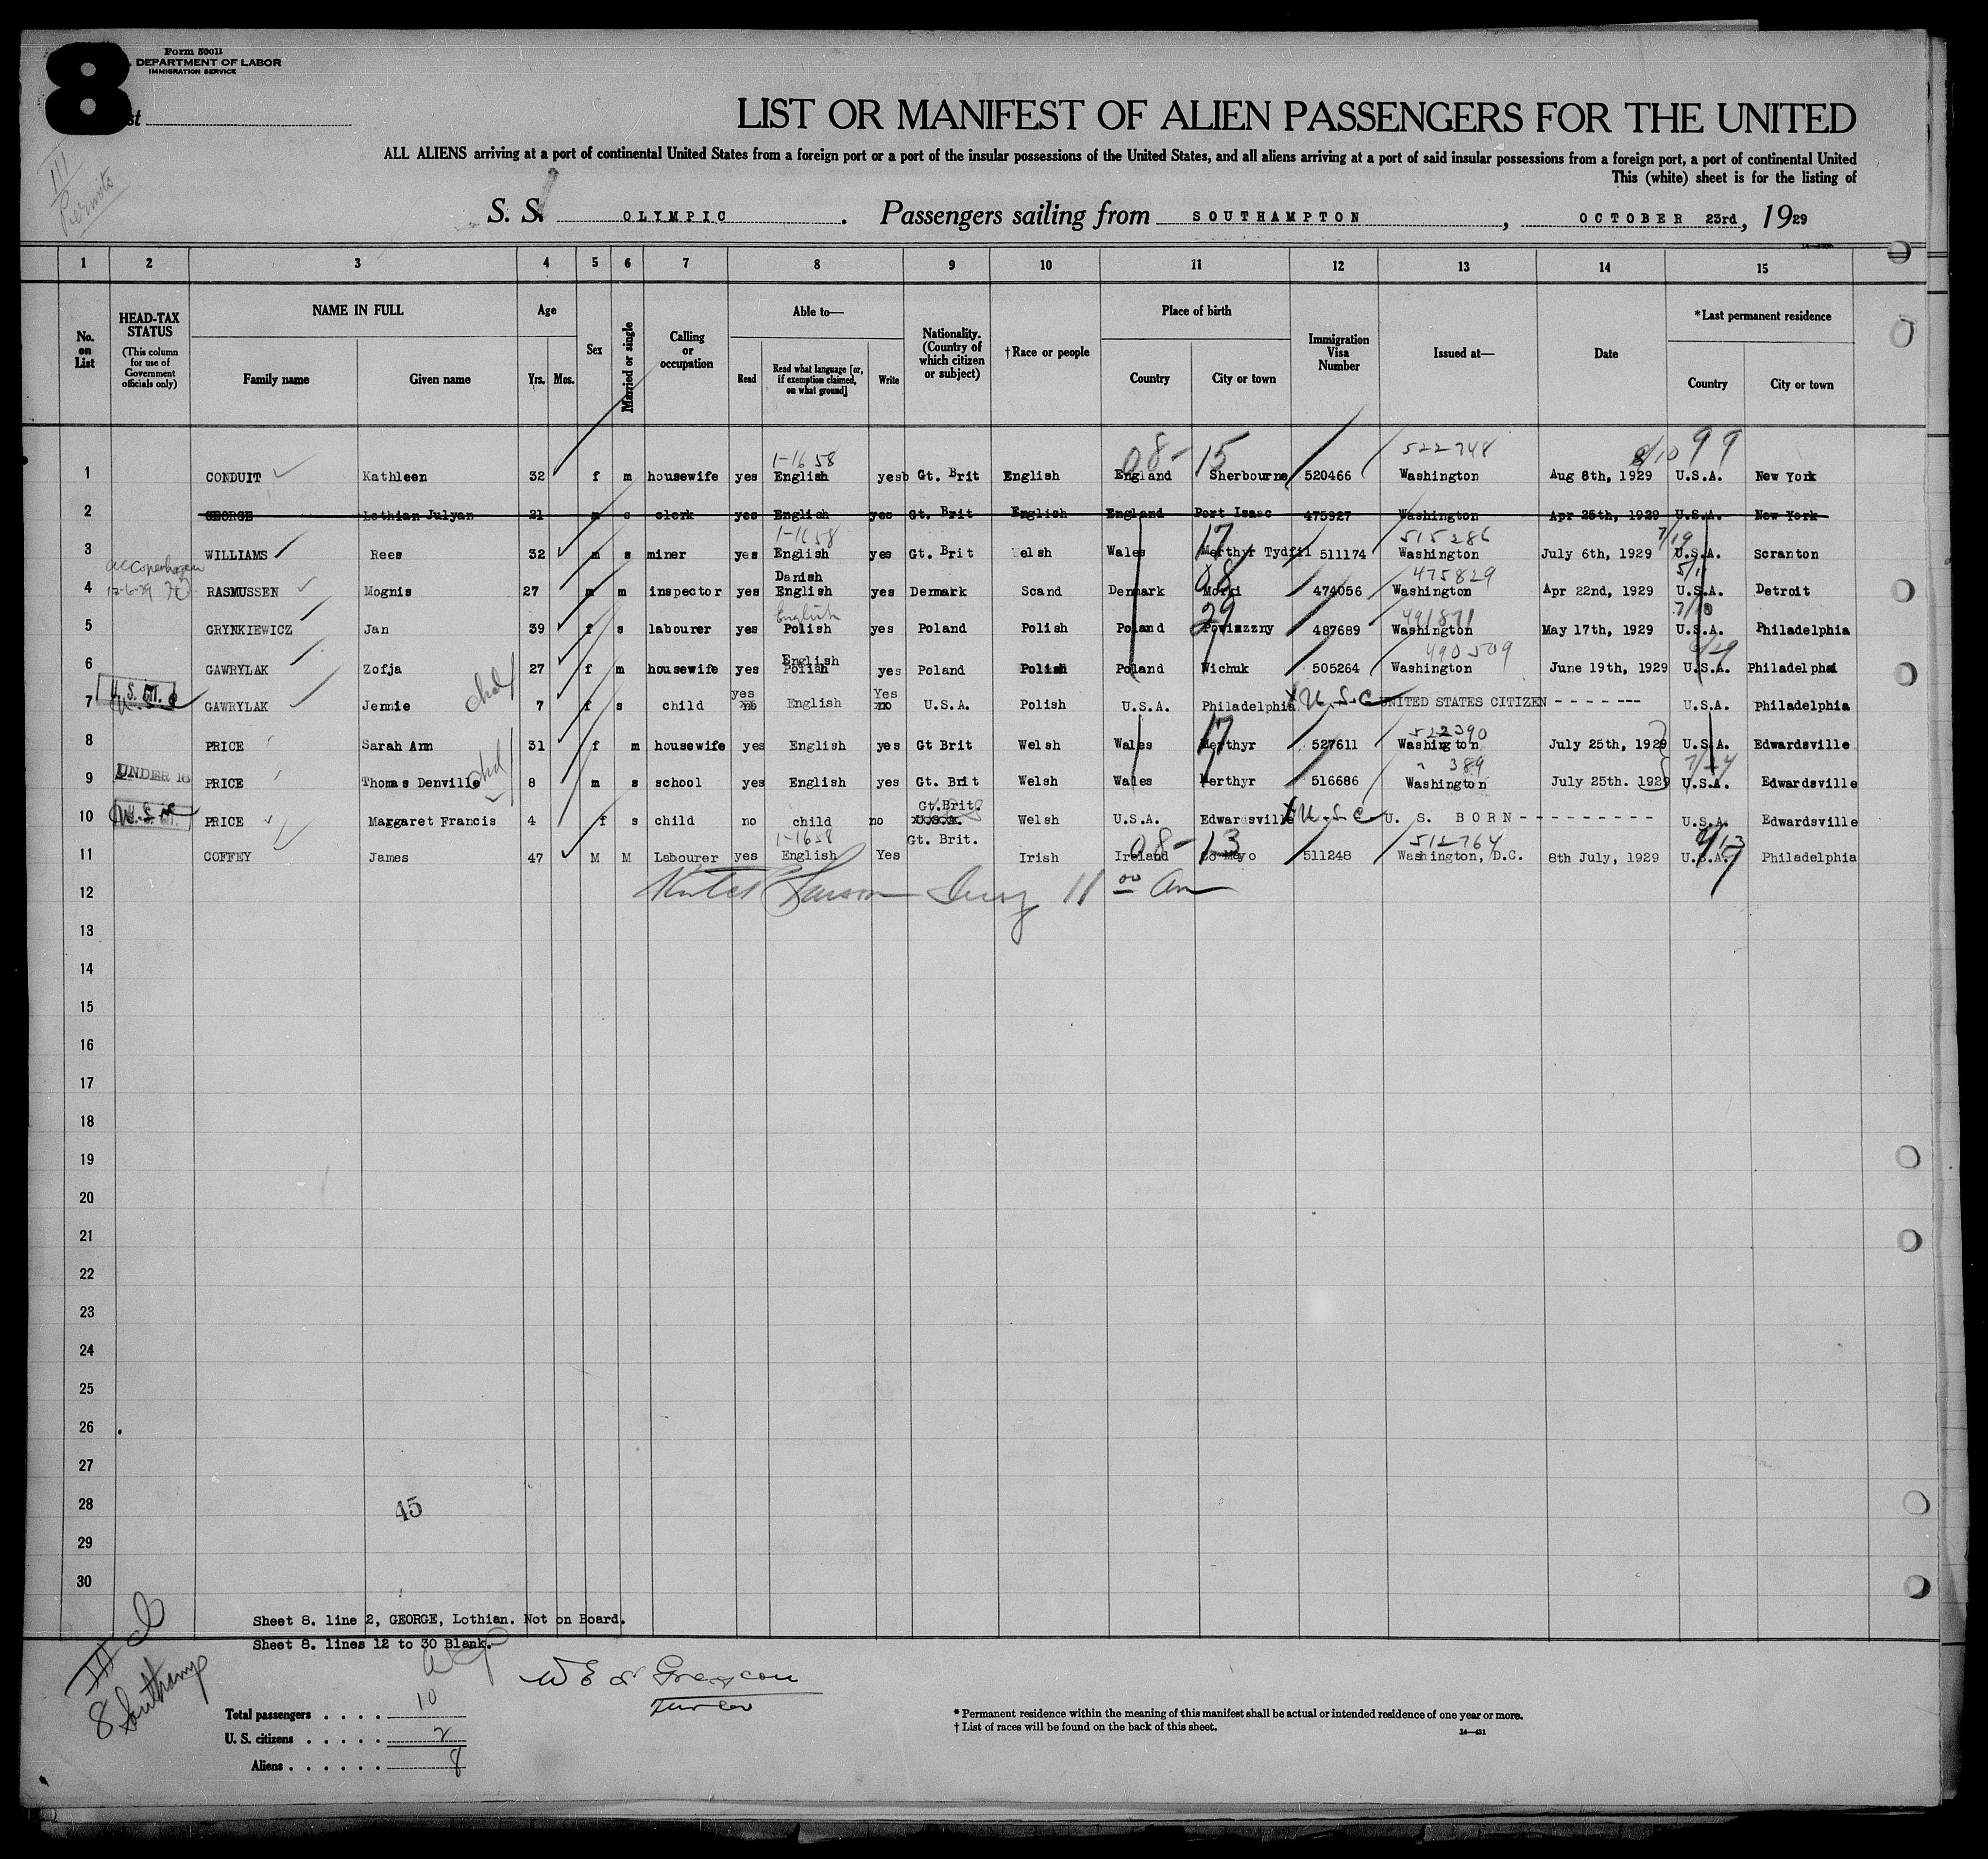 8
Form 500B
DEPARTMENT OF LABOR
IMMIGRATION SERVICE
st
III
Permits
LIST OR MANIFEST OF ALIEN PASSENGERS FOR THE UNITED
ALL ALIENS arriving at a port of continental United States from a foreign port or a port of the insular possessions of the United States, and all aliens arriving at a port of said insular possessions from a foreign port, a port of continental United
This (white) sheet is for the listing of
S. S. OLYMPIC. Passengers sailing from SOUTHAMPTON, OCTOBER 23rd, 1929
1 2 3 4 5 6 7 8 9 10 11 12 13 14 15
No. on List
HEAD-TAX STATUS
(This column for use of Government officials only)
NAME IN FULL
Family name Given name
Age
Yrs. Mos.
Sex
Married or single
Calling or occupation
Able to—
Read Read what language [or, if exemption claimed, on what ground] Write
Nationality. (Country of which citizen or subject)
†Race or people
Place of birth
Country City or town
Immigration Visa Number
Issued at—
Date
*Last permanent residence
Country City or town
1-1658 08-15 522748 8/10 99
1 CONDUIT Kathleen 32 f m housewife yes English yes Gt. Brit English England Sherbourne 520466 Washington Aug 8th, 1929 U.S.A. New York
2 GEORGE Lothian Julyan 21 m s clerk yes English yes Gt. Brit English England Port Isaac 475927 Washington Apr 25th, 1929 U.S.A. New York
1-1658 17 515286 7/19
3 WILLIAMS Rees 32 m s miner yes English yes Gt. Brit Welsh Wales Merthyr Tydfil 511174 Washington July 6th, 1929 U.S.A. Scranton
Danish 08 475829 5/11
4 RASMUSSEN Mognis 27 m m inspector yes English yes Denmark Scand Denmark Morki 474056 Washington Apr 22nd, 1929 U.S.A. Detroit
English 29 491871
5 GRYNKIEWICZ Jan 39 f s labourer yes Polish yes Poland Polish Poland Powiazzny 487689 Washington May 17th, 1929 U.S.A. Philadelphia
English 490509
6 GAWRYLAK Zofja 27 f m housewife yes Polish yes Poland Polish Poland Wichuk 505264 Washington June 19th, 1929 U.S.A. Philadelphia
U.S.C yes Yes chd
7 GAWRYLAK Jennie 7 f s child no English no U.S.A. Polish U.S.A. Philadelphia U.S.C UNITED STATES CITIZEN - - - - - --- U.S.A. Philadelphia
17 522390
8 PRICE Sarah Ann 31 f m housewife yes English yes Gt Brit Welsh Wales Merthyr 527611 Washington July 25th, 1929 U.S.A. Edwardsville
UNDER 16 chd " 389
9 PRICE Thomas Denville 8 m s school yes English yes Gt. Brit Welsh Wales Merthyr 516686 Washington July 25th. 1929 U.S.A. Edwardsville
Gt.Brit.
10 PRICE Margaret Francis 4 f s child no child no U.S.A. Welsh U.S.A. Edwardsville U.S.C U. S. BORN - - - - - - - - - - U.S.A. Edwardsville
1-1658 Gt. Brit. 08-13 512764
11 COFFEY James 47 M M Labourer yes English Yes Irish Ireland Co Mayo 511248 Washington, D.C. 8th July, 1929 U.S.A. Philadelphia
12 11 00 Am
13
14
15
16
17
18
19
20
21
22
23
24
25
26
27
28
45
29
30
Sheet 8. line 2, GEORGE, Lothian. Not on Board.
Sheet 8. lines 12 to 30 Blank.
8 Southamp
Total passengers . . . . 10
U. S. citizens . . . . . 2
Aliens . . . . . . 8
* Permanent residence within the meaning of this manifest shall be actual or intended residence of one year or more.
† List of races will be found on the back of this sheet.
14—431